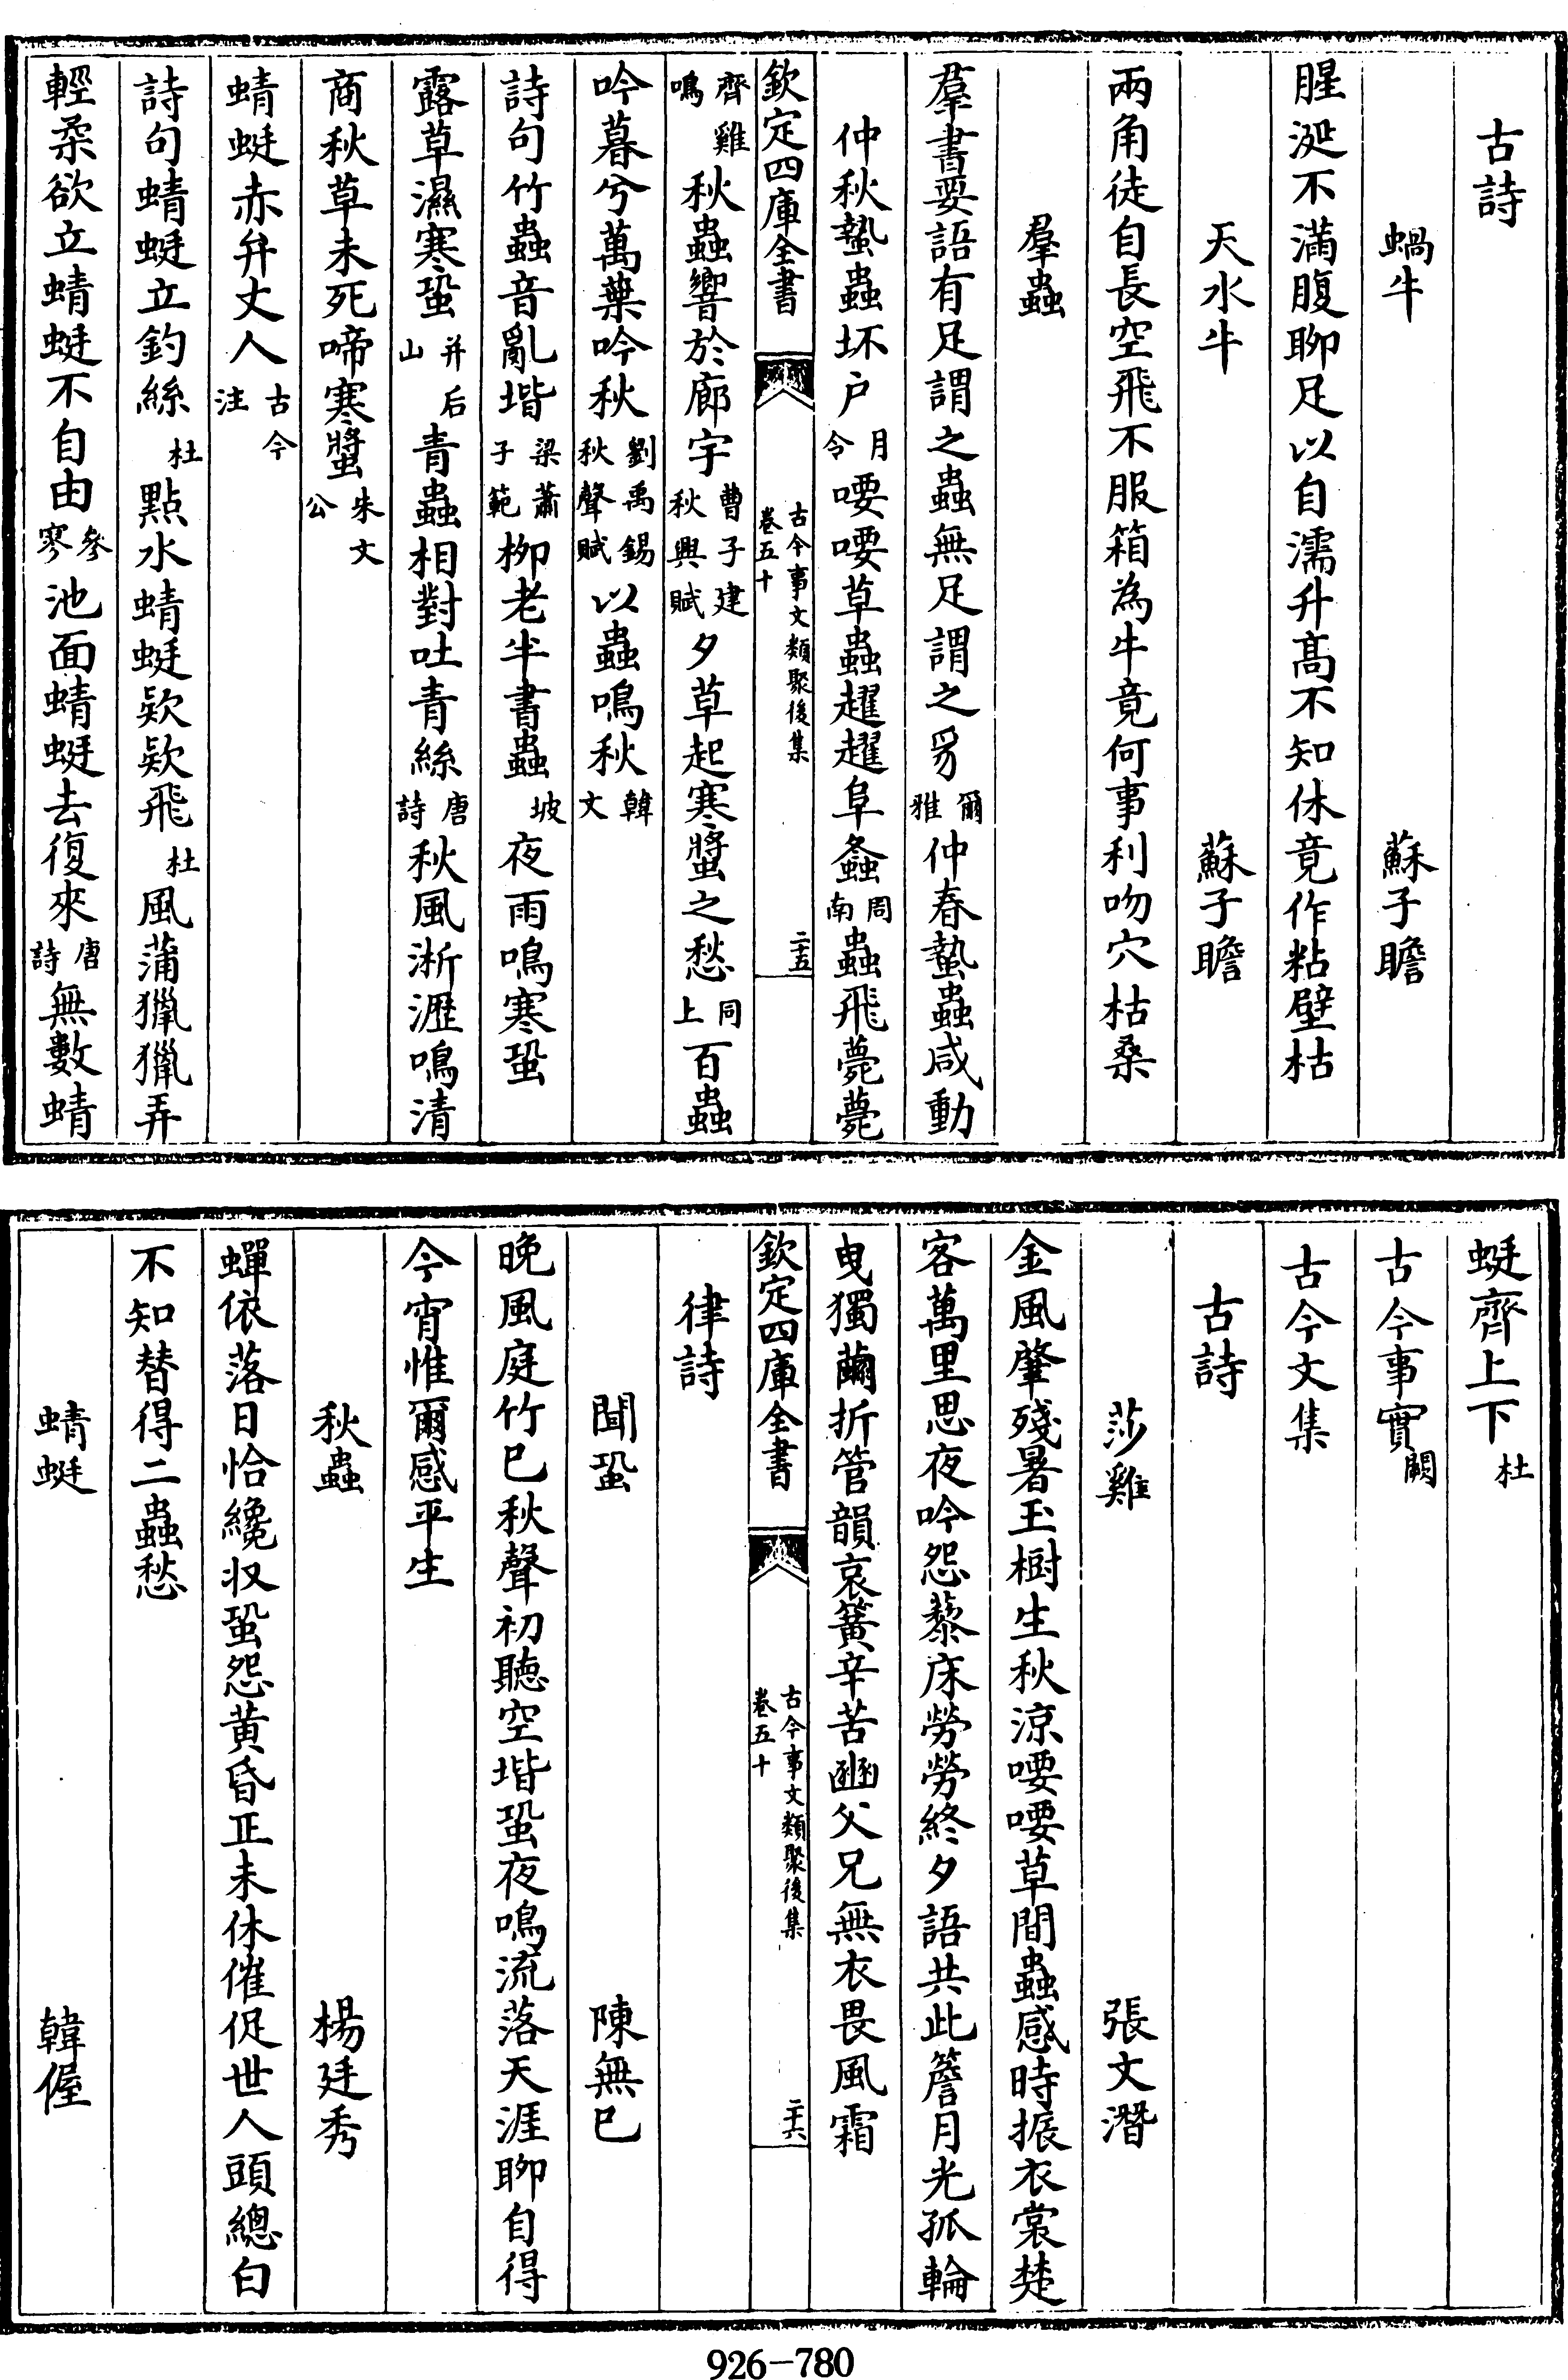 古詩
蝸牛 蘇子瞻
腥涎不滿腹聊足以自濡升髙不知休竟作粘壁枯
天水牛 蘇子瞻
兩角徒自長空飛不服箱為牛竟何事利吻穴枯桑
羣蟲
羣書要語有足謂之蟲無足謂之豸爾雅仲春蟄蟲咸動
仲秋蟄蟲坏户月令喓喓草蟲趯趯阜螽周南蟲飛薨薨
欽定四庫全書 古今事文類聚後集卷五十 二十五
齊雞鳴秋蟲響於廊宇曹子建秋興賦夕草起寒螿之愁同上百蟲
吟暮兮萬葉吟秋劉禹錫秋聲賦以蟲鳴秋韓文
詩句竹蟲音亂堦梁蕭子範栁老半書蟲坡夜雨鳴寒蛩
露草濕寒蛩并后山青蟲相對吐青絲唐詩秋風淅瀝鳴清
商秋草未死啼寒螿朱文公
蜻蜓赤弁丈人古今注
詩句蜻蜓立釣絲杜點水蜻蜓欵欵飛杜風蒲獵獵弄
輕柔欲立蜻蜓不自由參寥池面蜻蜓去復來唐詩無數蜻
蜓齊上下杜
古今事實闕
古今文集
古詩
莎雞 張文潛
金風肇殘暑玉樹生秋涼喓喓草間蟲感時振衣裳楚
客萬里思夜吟怨藜床勞勞終夕語共此簷月光孤輪
曳獨繭折管韻哀簧辛苦豳父兄無衣畏風霜
欽定四庫全書 古今事文類聚後集卷五十 二十六
律詩
聞蛩 陳無已
晚風庭竹已秋聲初聽空堦蛩夜鳴流落天涯聊自得
今宵惟爾感平生
秋蟲 楊廷秀
蟬依落日恰纔収蛩怨黄昏正未休催促世人頭總白
不知替得二蟲愁
蜻蜓 韓偓
926-780